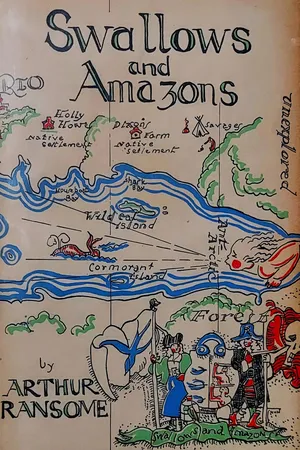 Swallows
and
Amazons
RIO
Holly
Howe
Native
Settlement
Dixons
Farm
Native
settlement
Savages
unexplored
Shark
Bay
Houseboat
Bay
Wild Cat
Island
Cormorant
Island
Forest
by
ARTHUR
RANSOME
Swallows and Amazons